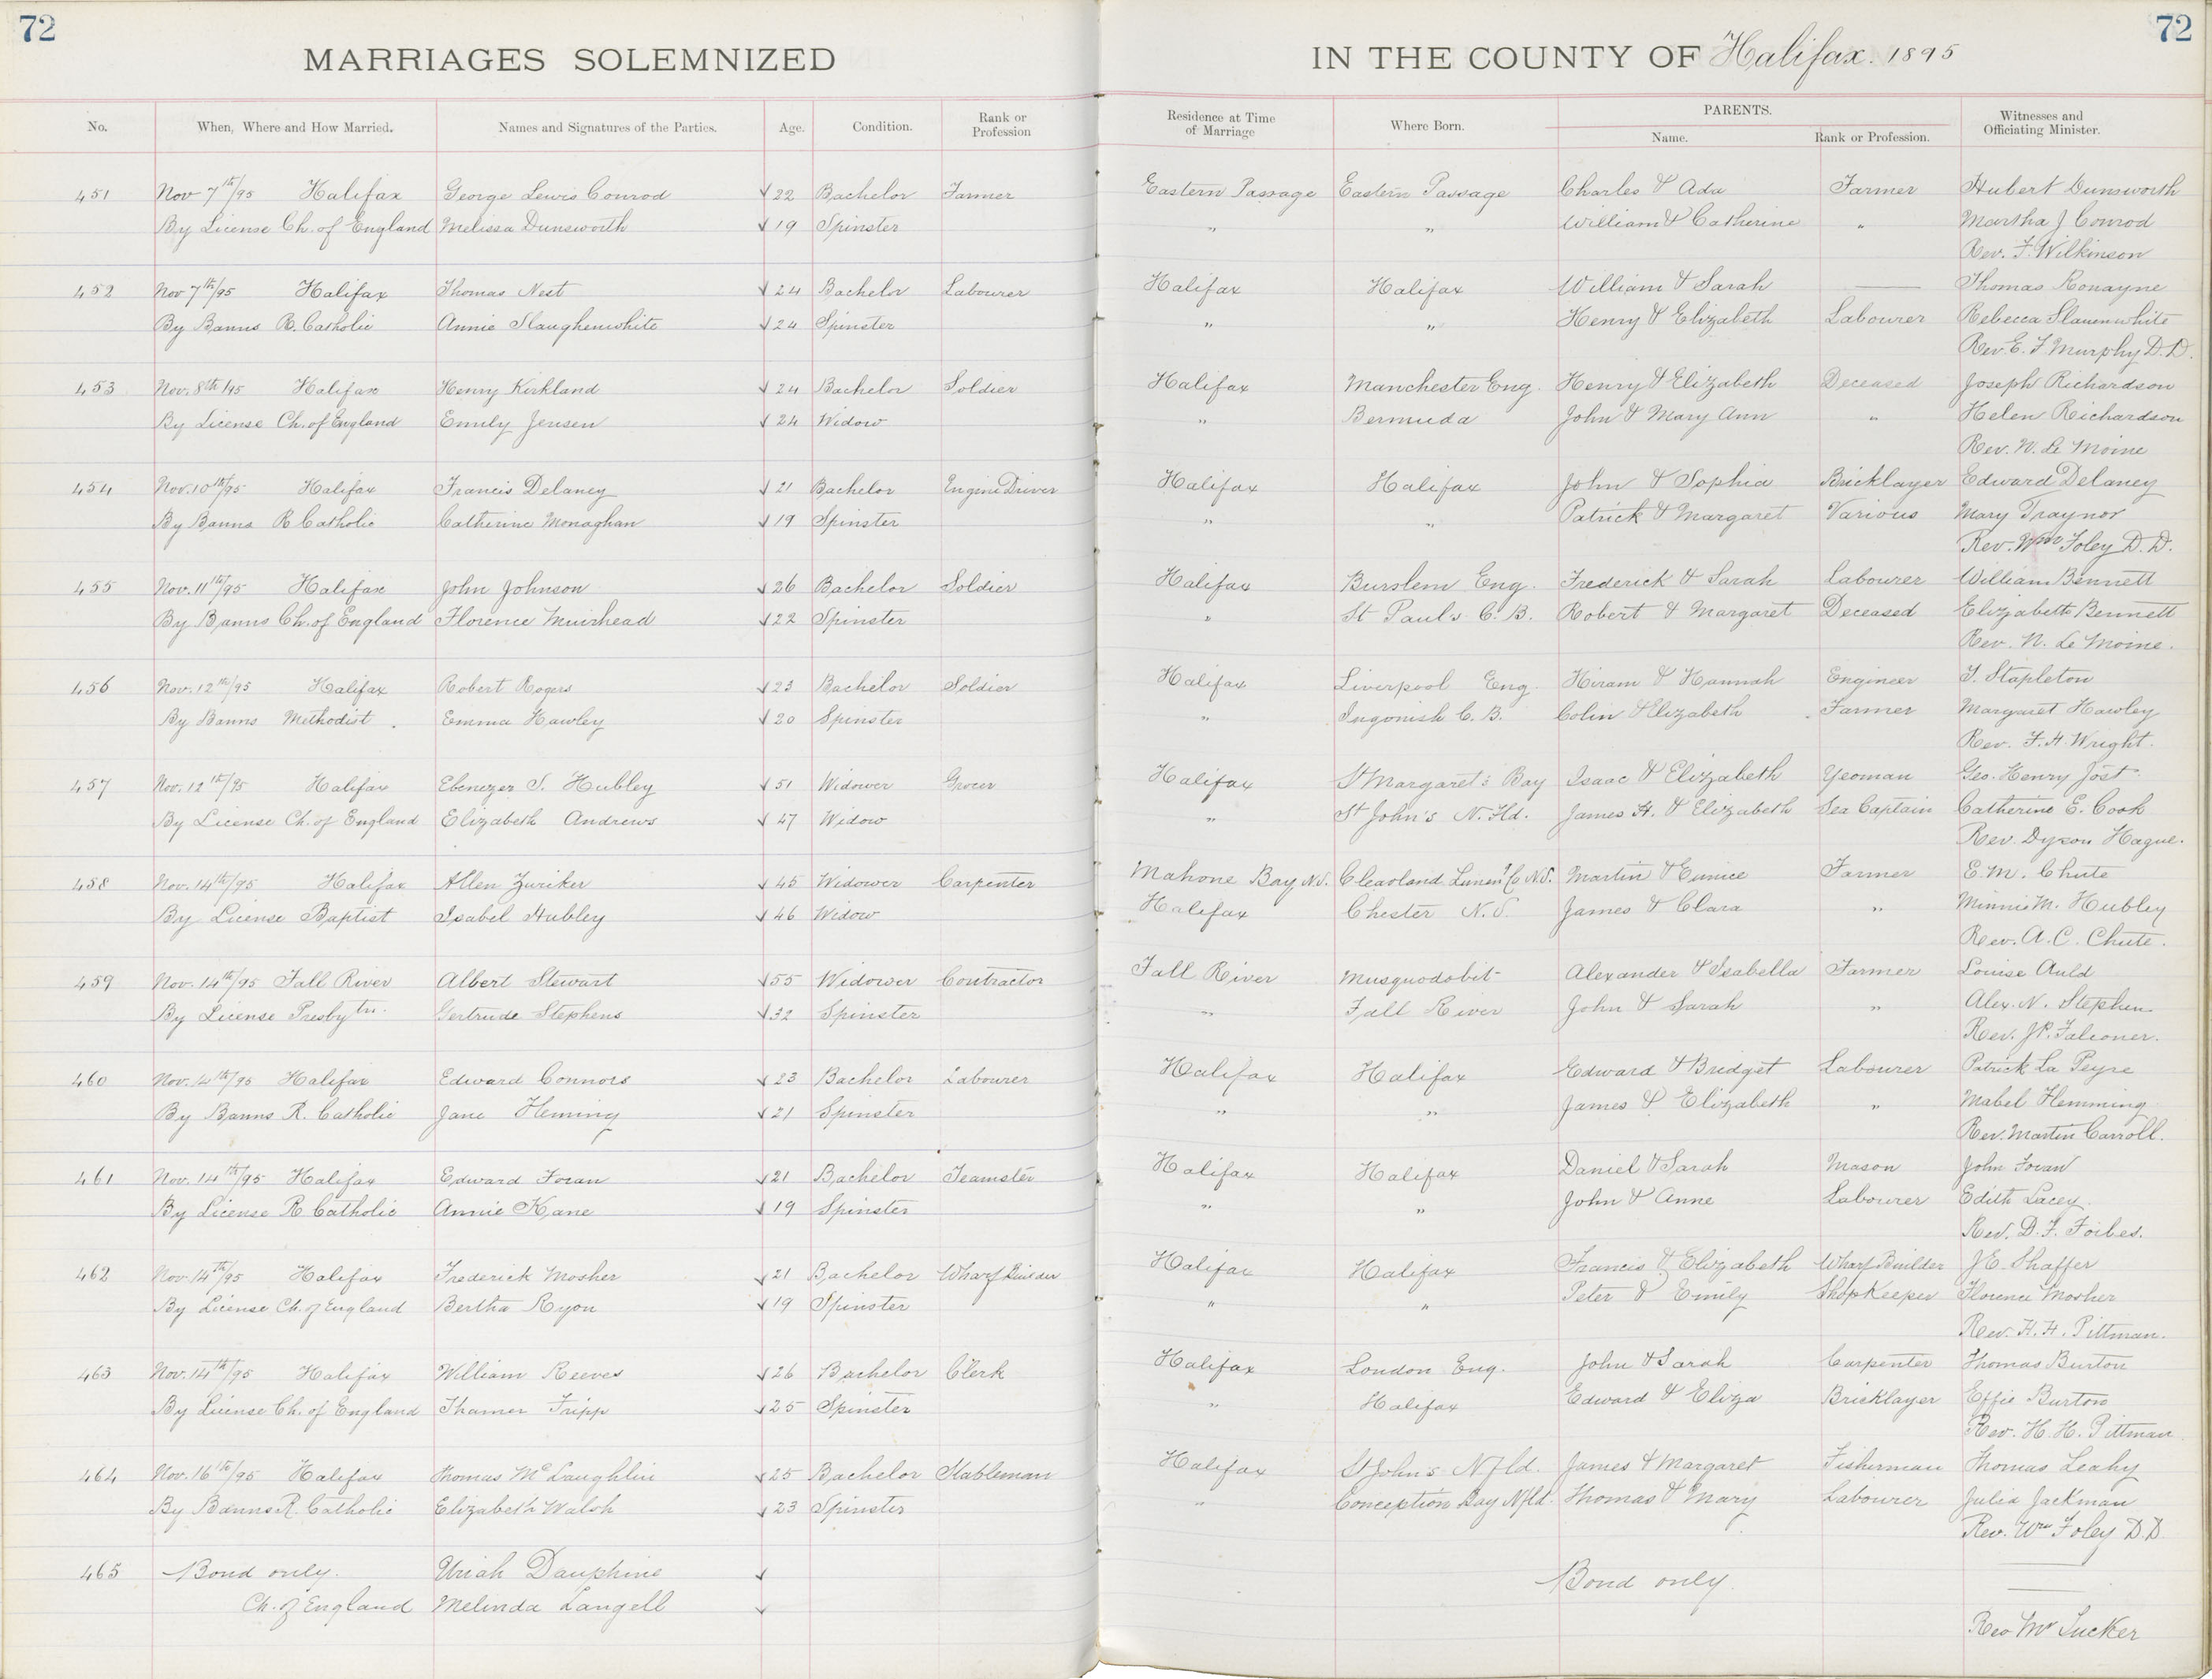 72
72
MARRIAGES SOLEMNIZED IN THE COUNTY OF Halifax. 1895
No. When, Where and How Married. Names and Signatures of the Parties. Age. Condition. Rank or Profession Residence at Time of Marriage Where Born. PARENTS. Name. Rank or Profession. Witnesses and Officiating Minister.
451 Nov 7th/95 Halifax George Lewis Conrod √ 22 Bachelor Farmer Eastern Passage Eastern Passage Charles & Ada Farmer Hubert Dunsworth
By License Ch. of England Melissa Dunsworth √ 19 Spinster " " William & Catherine " Martha J Conrod
Rev. F. Wilkinson
452 Nov 7th/95 Halifax Thomas Nest √ 24 Bachelor Labourer Halifax Halifax William & Sarah — Thomas Ronayne
By Banns R. Catholic Annie Slaughenwhite √ 24 Spinster " " Henry & Elizabeth Labourer Rebecca Slauenwhite
Rev. E. F Murphy D.D.
453 Nov. 8th/95 Halifax Henry Kirkland √ 24 Bachelor Soldier Halifax Manchester Eng. Henry & Elizabeth Deceased Joseph Richardson
By License Ch. of England Emily Jensen √ 24 Widow " Bermuda John & Mary Ann " Helen Richardson
Rev. N. Le Moine
454 Nov. 10th/95 Halifax Francis Delaney √ 21 Bachelor Engine Driver Halifax Halifax John & Sophia Bricklayer Edward Delaney
By Banns R Catholic Catherine Monaghan √ 19 Spinster " " Patrick & Margaret Various Mary Traynor
Rev. Wm Foley D.D.
455 Nov. 11th/95 Halifax John Johnson √ 26 Bachelor Soldier Halifax Burslem Eng. Frederick & Sarah Labourer William Bennett
By Banns Ch. of England Florence Muirhead √ 22 Spinster " St Paul's C. B. Robert & Margaret Deceased Elizabeth Bennett
Rev. N. Le Moine.
456 Nov. 12th/95 Halifax Robert Rogers √ 23 Bachelor Soldier Halifax Liverpool Eng. Hiram & Hannah Engineer T. Stapleton
By Banns Methodist. Emma Hawley √ 20 Spinster " Ingonish C. B. Colin & Elizabeth Farmer Margaret Hawley
Rev. F. H. Wright.
457 Nov. 12th/95 Halifax Ebenezer S. Hubley √ 51 Widower Grocer Halifax St Margaret's Bay Isaac & Elizabeth Yeoman Geo. Henry Jost
By License Ch. of England Elizabeth Andrews √ 47 Widow " St John's N. Fld. James H. & Elizabeth Sea Captain Catherine E. Cook
Rev. Dyson Hague.
458 Nov. 14th/95 Halifax Allen Zwicker √ 45 Widower Carpenter Mahone Bay N.S. Cleavland Lunen'g Co N.S. Martin & Eunice Farmer E. M. Chute
By License Baptist Isabel Hubley √ 46 Widow Halifax Chester N.S. James & Clara " Minnie M. Hubley
Rev. A. C. Chute.
459 Nov. 14th/95 Fall River Albert Stewart √ 55 Widower Contractor Fall River Musquodobit Alexander & Isabella Farmer Louise Auld
By License Presbytrn. Gertrude Stephens √ 32 Spinster " Fall River John & Sarah " Alex. N. Stephen
Rev. J P. Falconer.
460 Nov. 14th/95 Halifax Edward Connors √ 23 Bachelor Labourer Halifax Halifax Edward & Bridget Labourer Patrick La Peyre
By Banns R. Catholic Jane Heming √ 21 Spinster " " James & Elizabeth " Mabel Hemming
Rev. Martin Carroll.
461 Nov. 14th/95 Halifax Edward Foran √ 21 Bachelor Teamster Halifax Halifax Daniel & Sarah Mason John Foran
By License R Catholic Annie Kane √ 19 Spinster " " John & Anne Labourer Edith Lacey
Rev. D. F. Foibes.
462 Nov. 14th/95 Halifax Frederick Mosher √ 21 Bachelor Wharf Builder Halifax Halifax Francis & Elizabeth Wharf Builder J E. Shaffer
By License Ch. of England Bertha Ryon √ 19 Spinster " " Peter & Emily ShopKeeper Florence Mosher
Rev. H. H. Pittman.
463 Nov. 14th/95 Halifax William Reeves √ 26 Bachelor Clerk Halifax London Eng. John & Sarah Carpenter Thomas Burton
By License Ch. of England Thamer Tripp √ 25 Spinster " Halifax Edward & Eliza Bricklayer Effie Burton
Rev. H. H. Pittman
464 Nov. 16th/95 Halifax Thomas McLaughlin √ 25 Bachelor Stableman Halifax St John's Nfld. James & Margaret Fisherman Thomas Leahy
By Banns R. Catholic Elizabeth Walsh √ 23 Spinster " Conception Bay Nfld. Thomas & Mary Labourer Julia Jackman
Rev. Wm Foley D.D.
465 Bond only. Uriah Dauphine √ Bond only. —
Ch. of England Melinda Langell √ —
Rev Mr Tucker